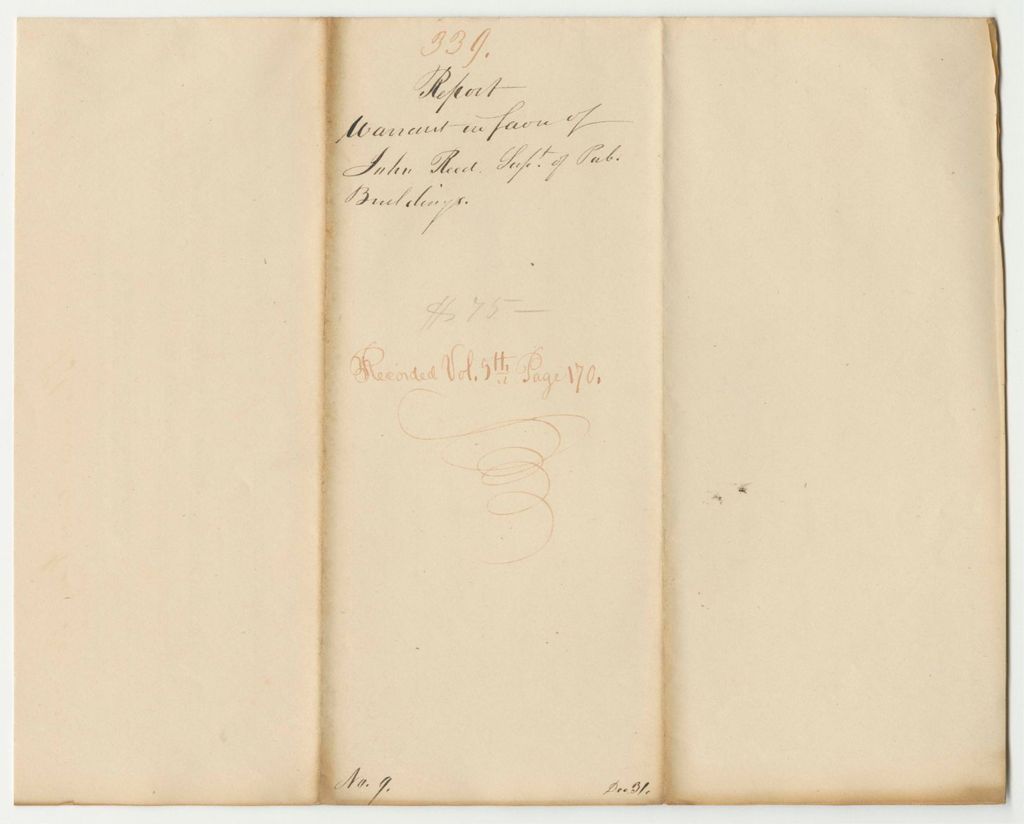 339.
Report
Warrant in favour of
John Reed. Supt. of Pub.
Buildings.
$75—
Recorded Vol. 5th Page 170.
No. 9.
Dec 31.